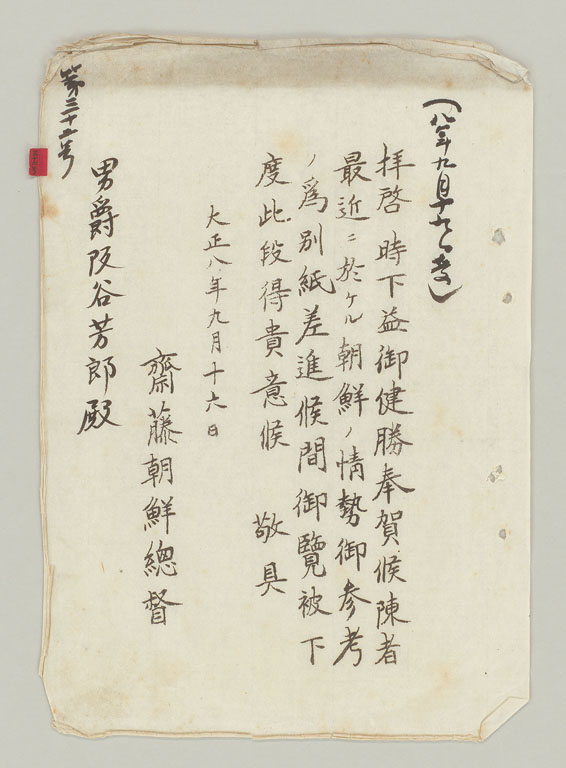 （八年九月十九日考）
拝啓 時下益御健勝奉賀候陳者
最近ニ於ケル朝鮮ノ情勢御参考
ノ爲別紙差進候間御覽被下
度此段得貴意候 敬具
大正八年九月十六日
齋藤朝鮮總督
男爵阪谷芳郎殿
第三十二号